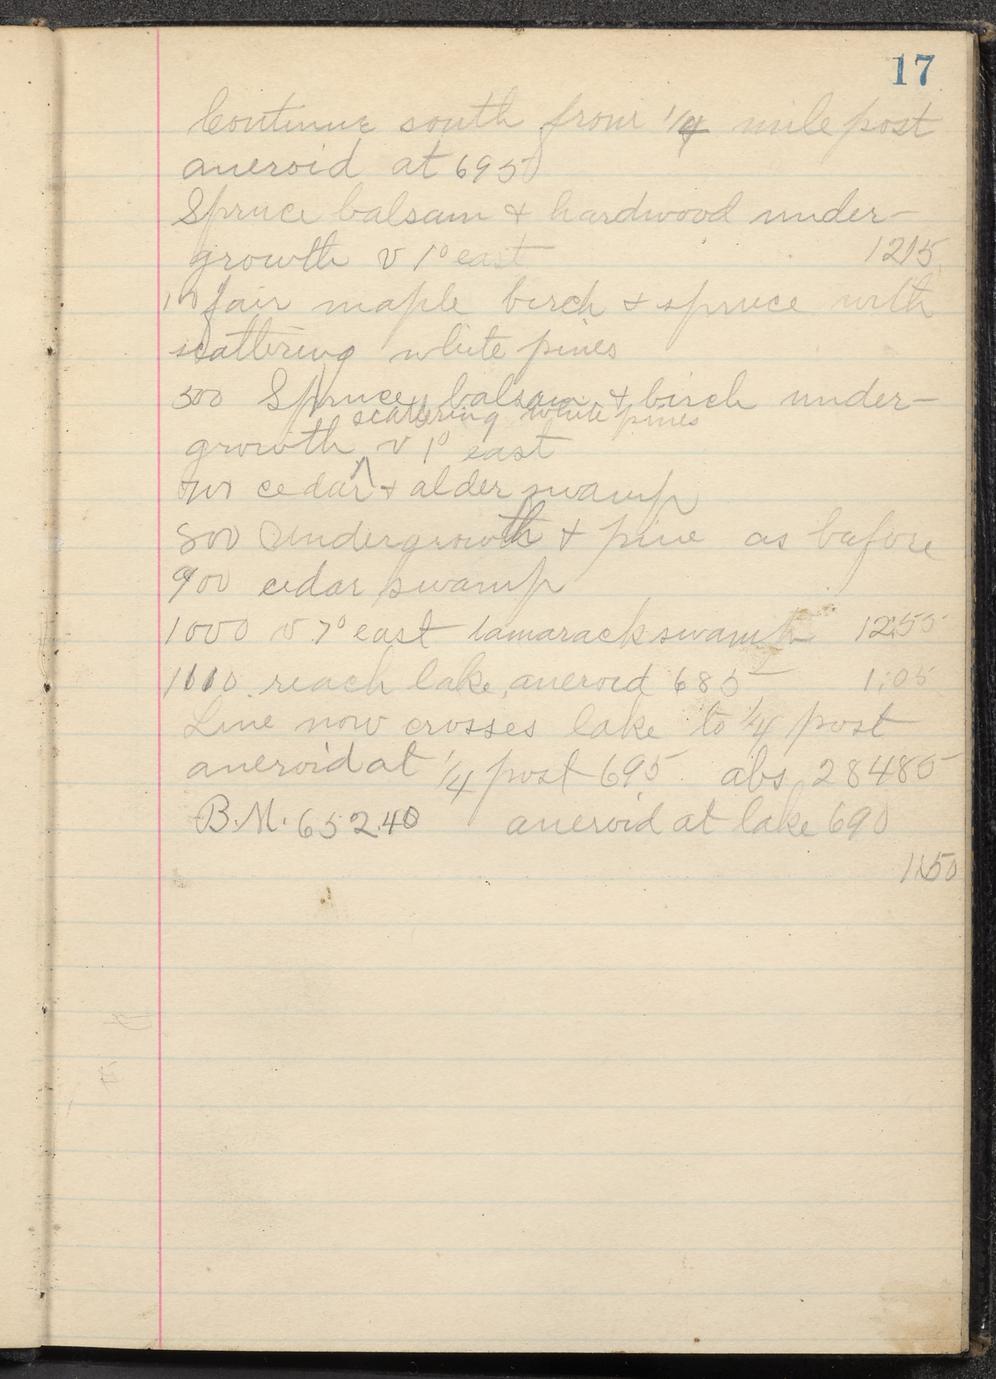 17
Continue south from 1/4 mile post
aneroid at 695
Spruce balsam & hardwood under-
growth v 1° east 1215
fair maple birch & spruce with
scattering white pines
500 Spruce, balsam & birch under-
scattering white pines
growth ^ v 1° east
700 cedar & alder swamp
800 Undergrowth & pine as before
900 cedar swamp
1000 v 7° east tamarack swamp 1255
1110 reach lake, aneroid 685 1:05
Line now crosses lake to 1/4 post
aneroid at 1/4 post 695 abs 28485
B.M. 65240 aneroid at lake 690
1:50